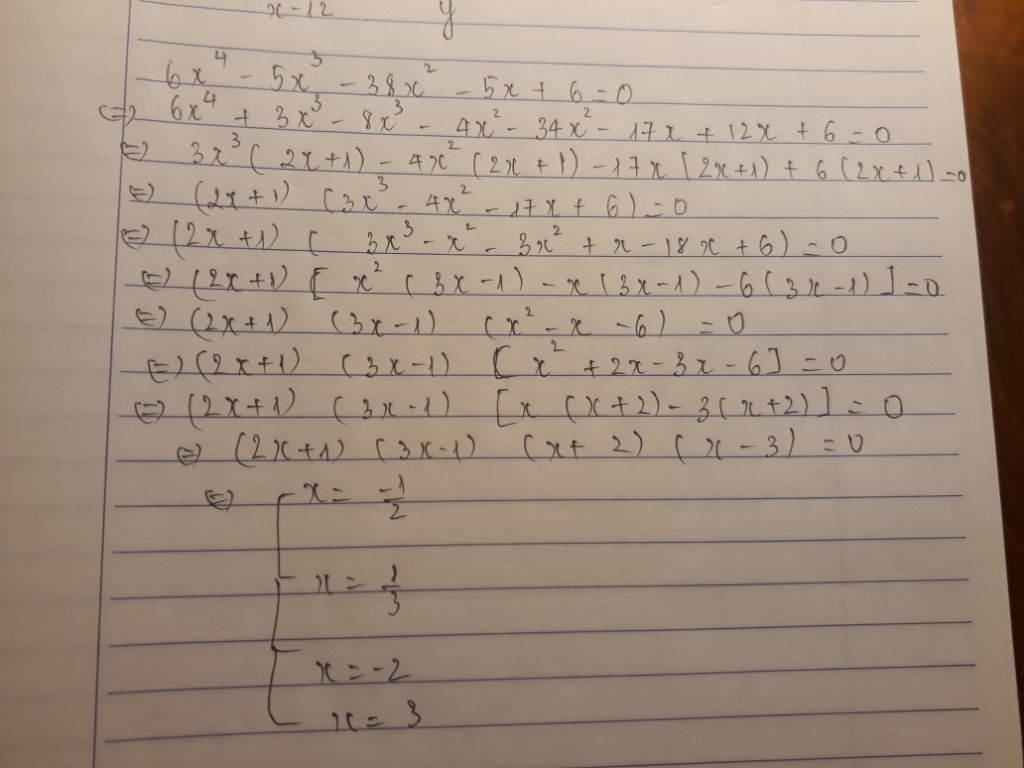 x-12 y
6x⁴ - 5x³ - 38x² - 5x + 6 = 0
⇔ 6x⁴ + 3x³ - 8x³ - 4x² - 34x² - 17x + 12x + 6 = 0
⇔ 3x³(2x+1) - 4x²(2x+1) - 17x[2x+1) + 6(2x+1) = 0
⇔ (2x+1) (3x³ - 4x² - 17x + 6) = 0
⇔ (2x+1) ( 3x³ - x² - 3x² + x - 18x + 6) = 0
⇔ (2x+1) [ x² (3x-1) - x(3x-1) - 6(3x-1) ] = 0
⇔ (2x+1) (3x-1) (x² - x - 6) = 0
⇔ (2x+1) (3x-1) [ x² + 2x - 3x - 6] = 0
⇔ (2x+1) (3x-1) [x (x+2) - 3(x+2)] = 0
⇔ (2x+1) (3x-1) (x+ 2) (x - 3) = 0
⇔ x = -1/2
x = 1/3
x = -2
x = 3